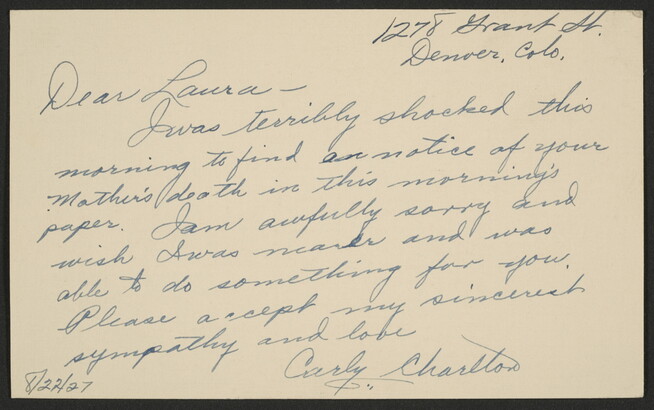 1278 Grant St.
Denver, Colo.
Dear Laura -
I was terribly shocked this
morning to find an notice of your
Mother's death in this morning's
paper. I am awfully sorry and
wish I was nearer and was
able to do something for you.
Please accept my sincerest
sympathy and love
Carly Charlton
8/22/27